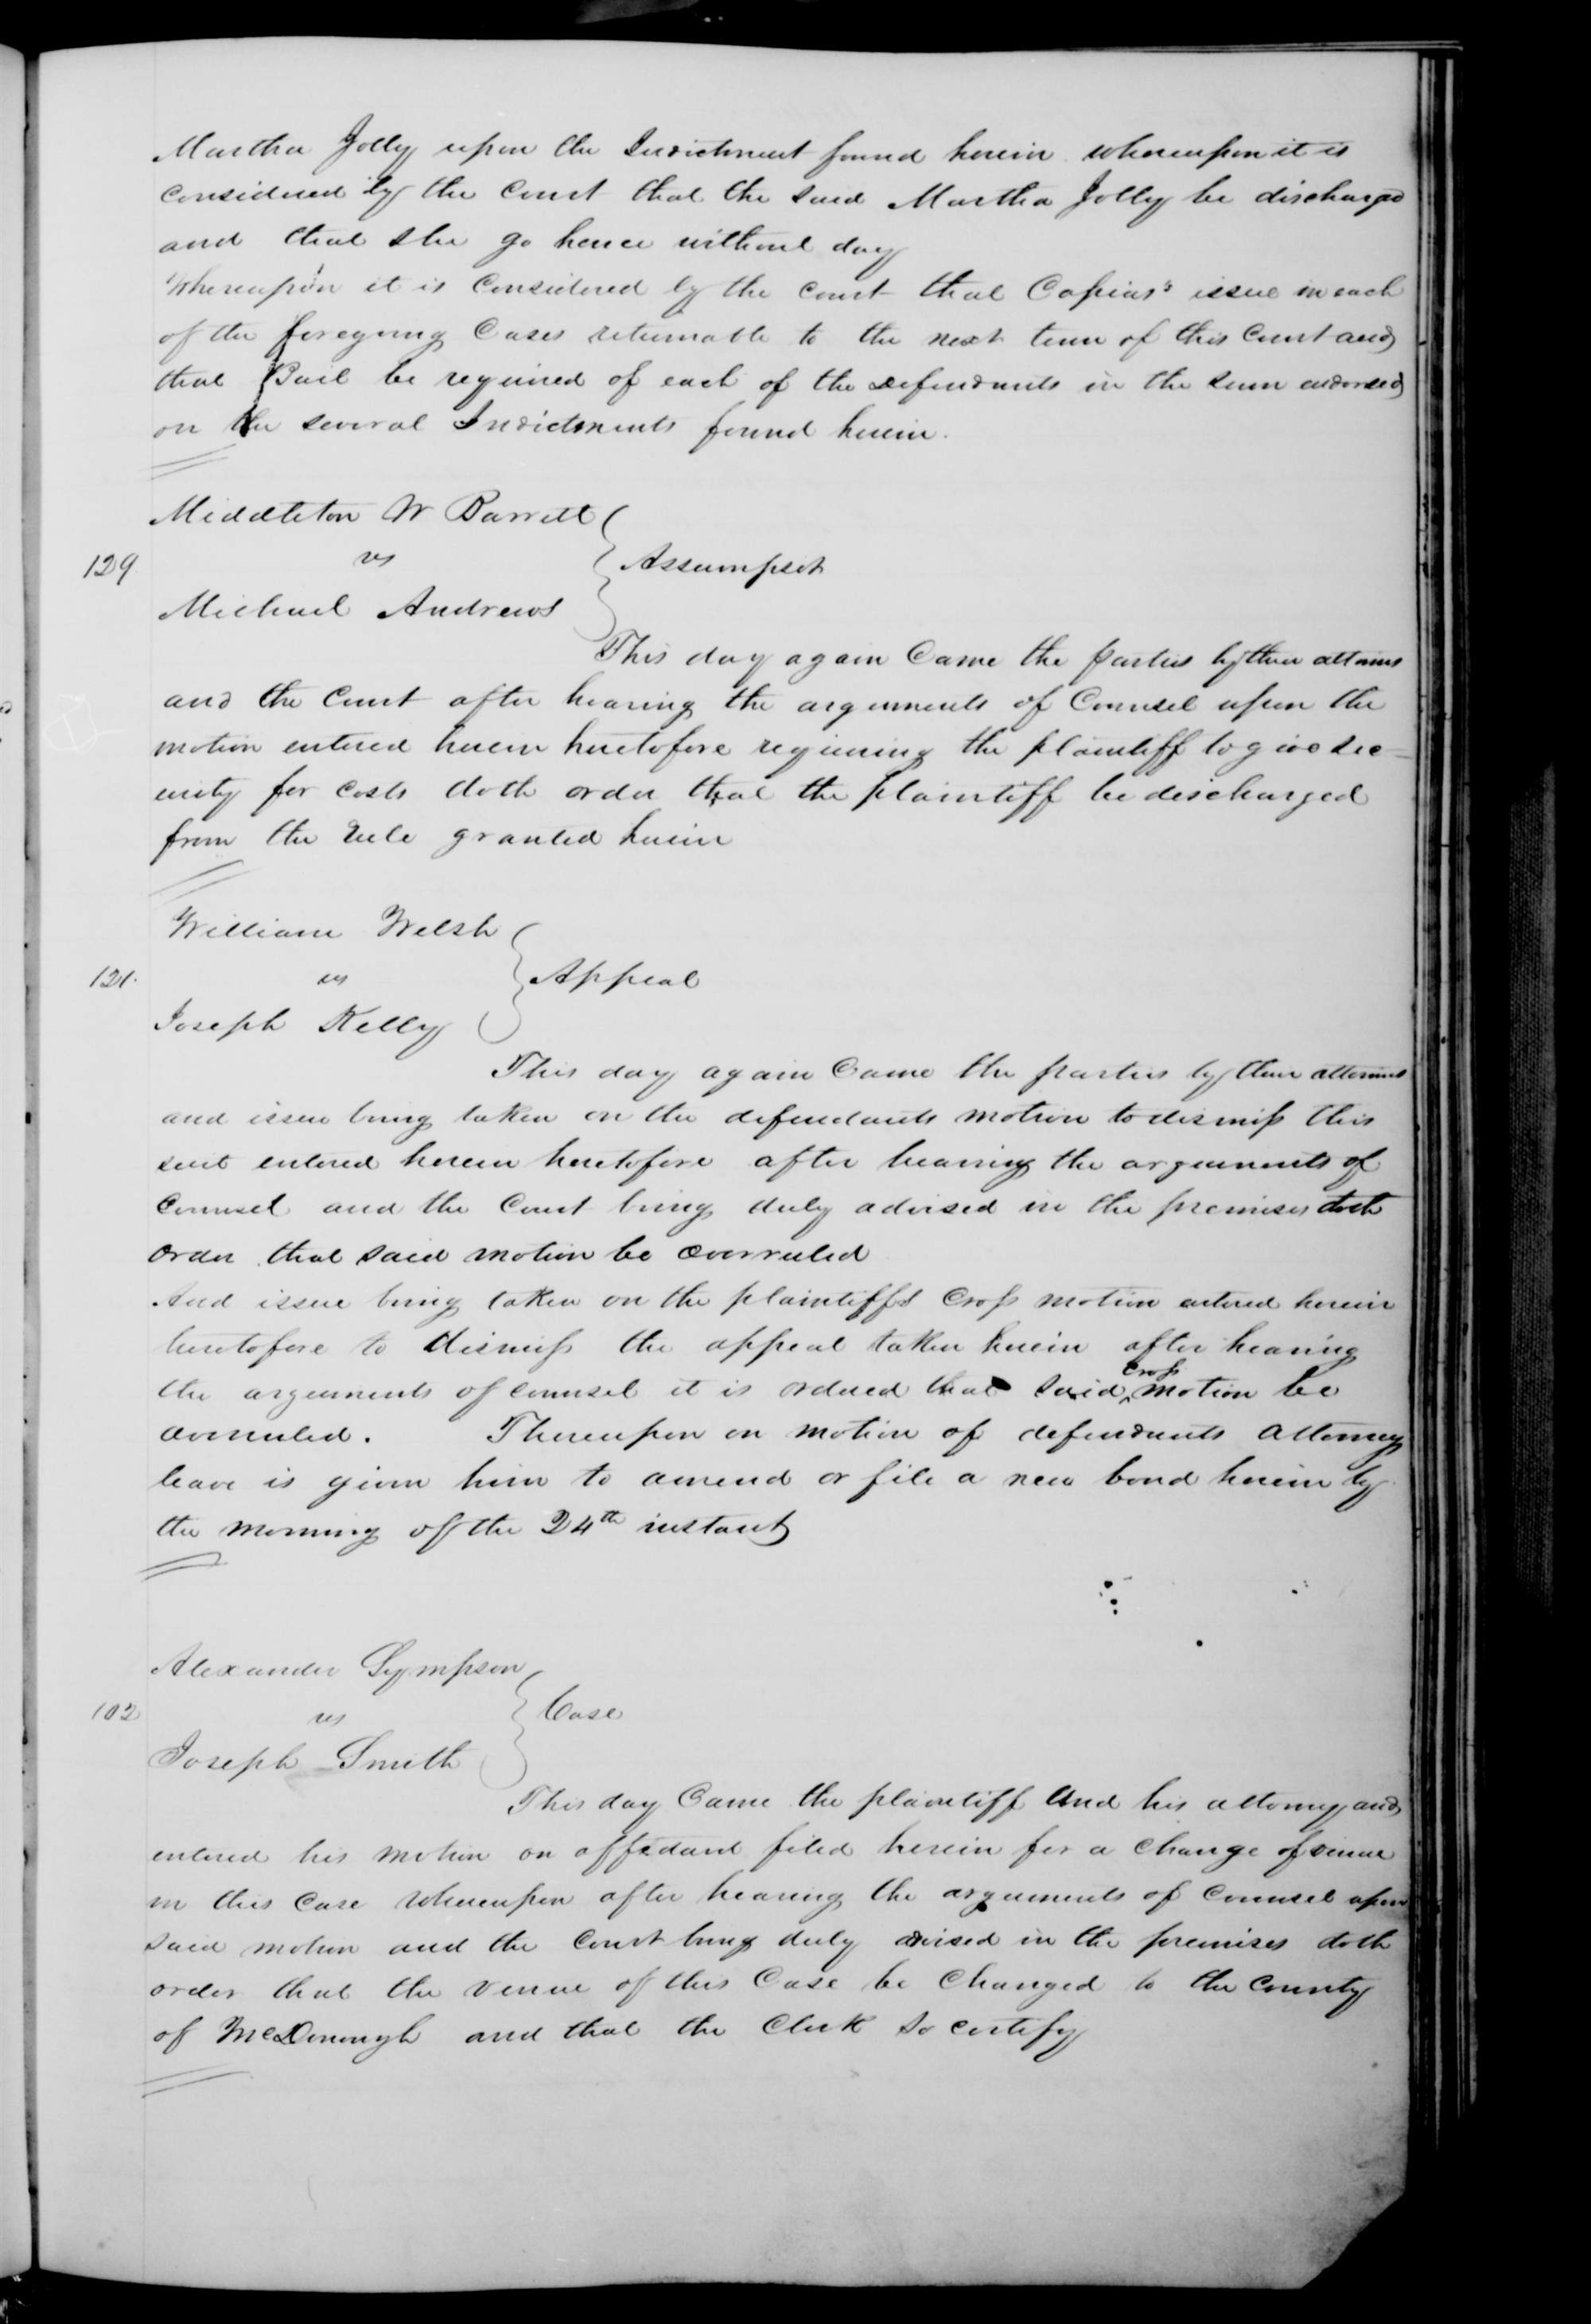 Martha Jolly upon the Indictment found herein whereupon it is
considered by the Court that the said Martha Jolly be discharged
and that she go hence without day
Whereupon it is Considered by the Court that Capias's issue in each
of the foregoing Cases returnable to the next term of this Court and
that Bail be required of each of the Defendants in the sum endorsed
on the several Indictments found herein.
Middleton W Barrett
129 vs Assumpsit
Michael Andrews
This day again Came the parties by their attornies
and the Court after hearing the arguments of Counsel upon the
motion entered herein heretofore requiring the plaintiff to give sec-
urity for costs doth order that the plaintiff be discharged
from the rule granted herein
William Welsh
121. vs Appeal
Joseph Kelly
This day again Came the parties by their attornies
and issue being taken on the defendants motion to dismiss this
suit entered herein heretofore after hearing the arguments of
Counsel and the Court being duly advised in the premises doth
order that said motion be overruled
And issue being taken on the plaintiffs Cross motion entered herein
heretofore to dismiss the appeal taken herein after hearing
the arguments of counsel it is ordered that said cross motion be
overruled. Thereupon on motion of defendants Attorney
leave is given him to amend or file a new bond herein by
the morning of the 24th instant
Alexander Sympson
102 vs Case
Joseph Smith
This day Came the plaintiff and his attorney and
entered his motion on affidavit filed herein for a Change of venue
in this Case whereupon after hearing the arguments of Counsel upon
said motion and the Court being duly advised in the premises doth
order that the venue of this Case be Changed to the County
of McDonough and that the Clerk so certify